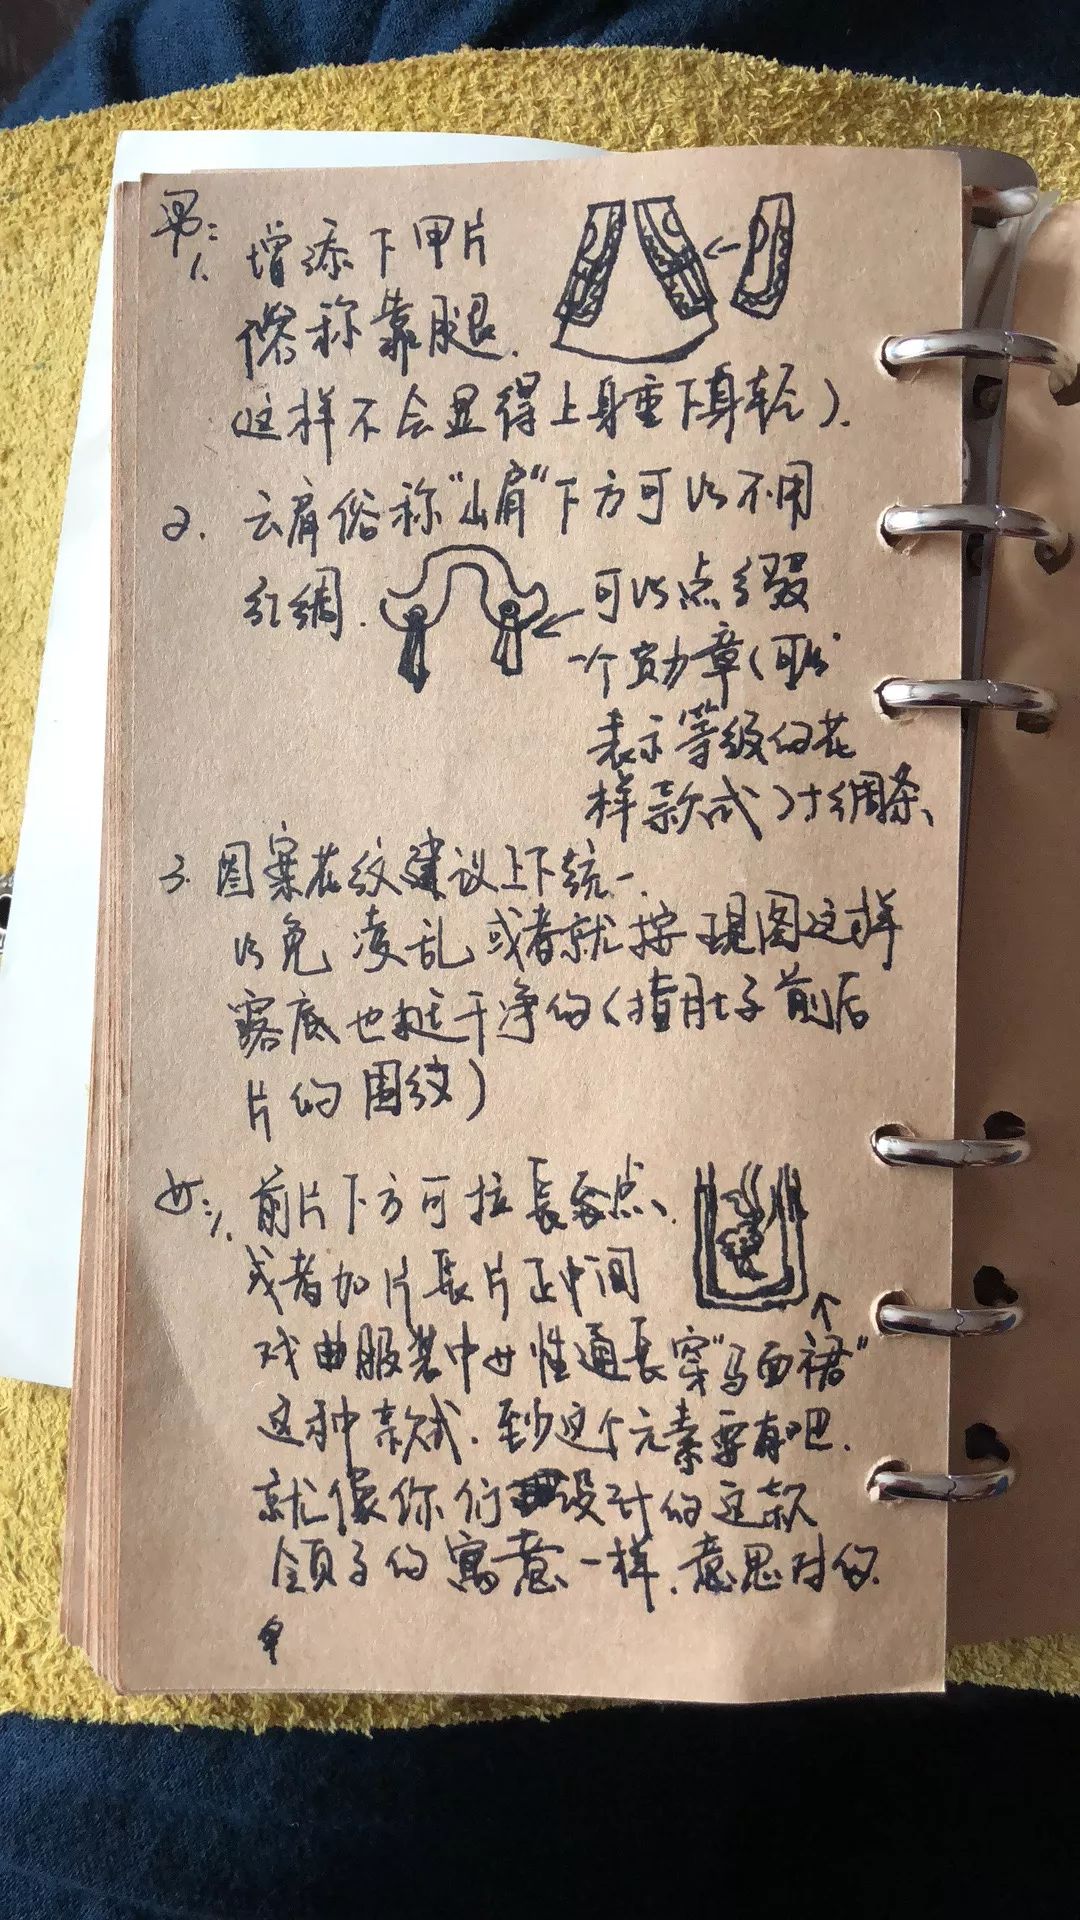 男:
1. 增添下甲片
俗称靠腿.
(这样不会显得上身重下身轻).
2. 云肩俗称“山肩”下方可以不用
红绸.
可以点缀
一个勋章(可以
表示等级的花
样款式)+绸条、
3. 图案花纹建议上下统一.
以免凌乱或者就按现图这样
露底也挺干净的(指肚子前后
片的图纹)
女:1. 前片下方可拉長点、
或者加片長片正中间
戏曲服装中女性通長穿“马面裙”
这种款式.至少这个元素要有吧.
就像你们设计的这款
领子的寓意一样.意思对的.